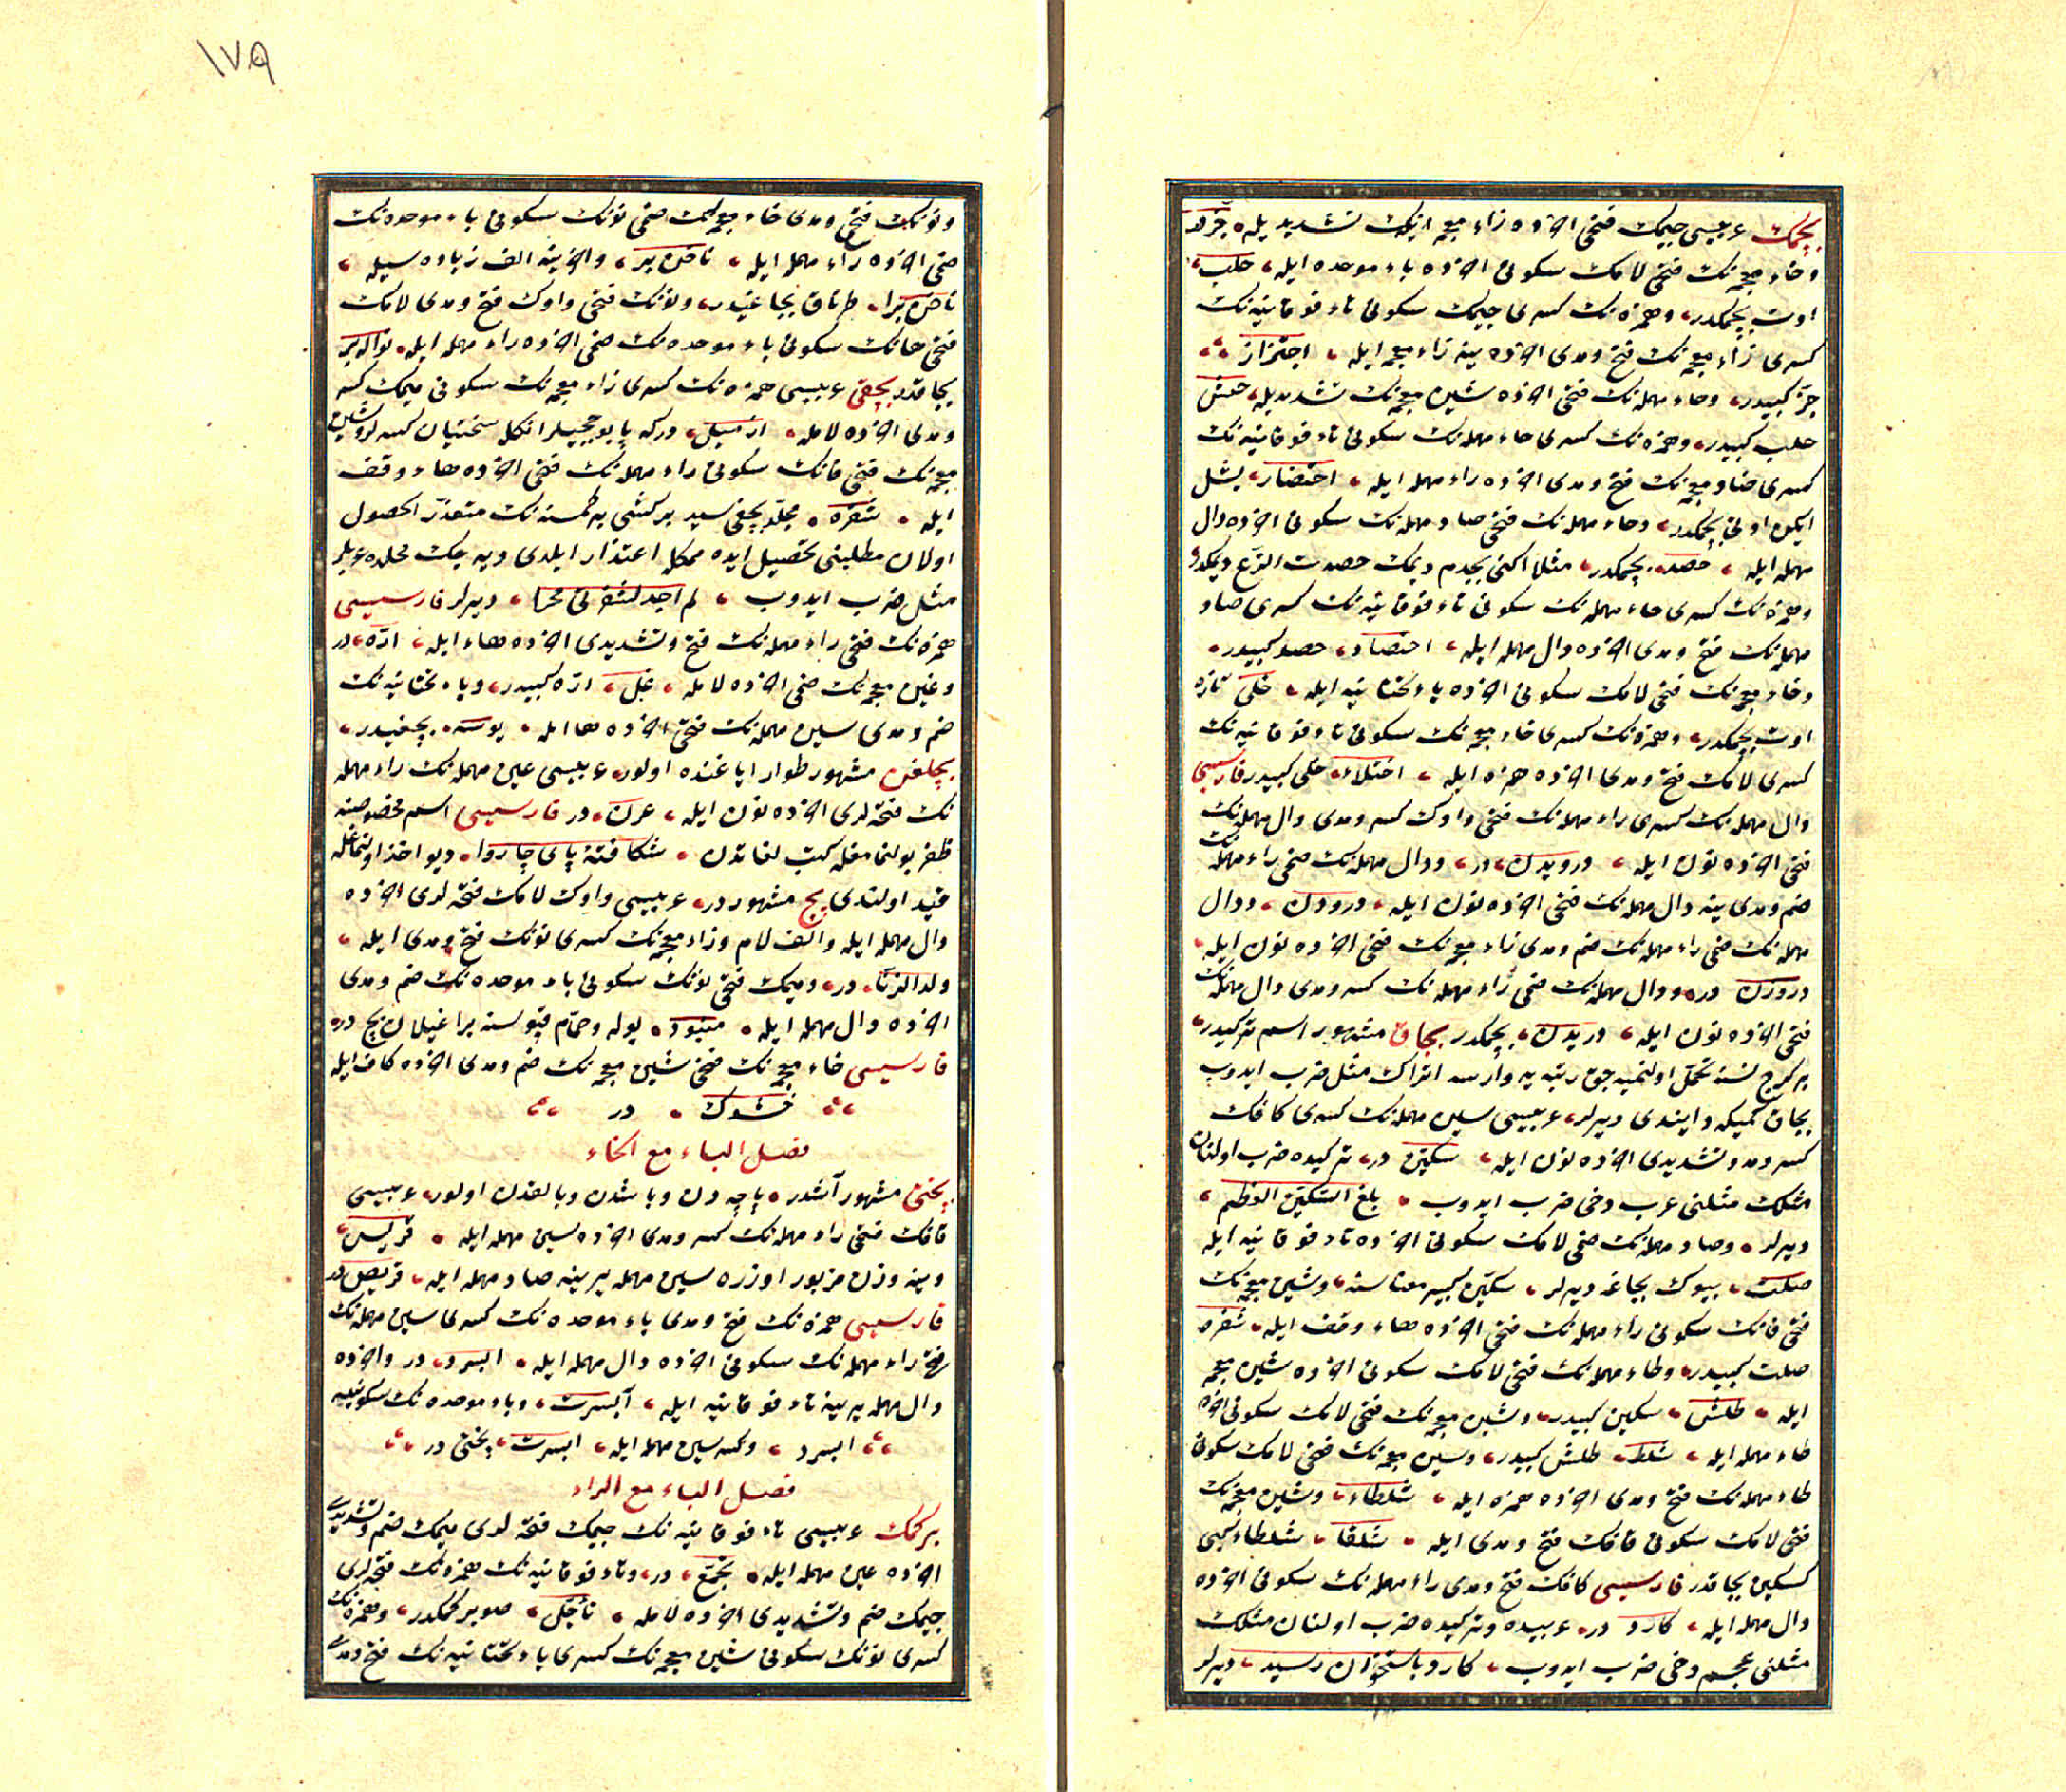 بچمك عربيسى جيمك فتحى اخرده زاء معجمه نك تشديديله جز در
وخاء معجمه نك فتحى لامك سكونى اخرده باء موحده ايله خلب
اوت بچمكدر وهمزه نك كسرى جيمك سكونى تاء فوقانيه نك
كسرى زاء معجمه نك فتح ومدى اخرده ينه زاء معجمه ايله اجتزاز
جز كبيدر وحاء مهمله نك فتحى اخرده شين معجمه نك تشديديله حش
خلب كبيدر وهمزه نك كسرى خاء مهمله نك سكونى تاء فوقانيه نك
كسرى ضاد معجمه نك فتح ومدى اخرده راء مهمله ايله اختضار يشل
ايكن اوتى بچمكدر وحاء مهمله نك فتحى صاد مهمله نك سكونى اخرده دال
مهمله ايله حصد بچمكدر مثلا اكنى بچدم ديمك حصدت الزرع ديمكدر
وهمزه نك كسرى حاء مهمله نك سكونى تاء فوقانيه نك كسرى صاد
مهمله نك فتح ومدى اخرده دال مهمله ايله احتصاد حصد كبيدر
وخاء معجمه نك فتحى لامك سكونى اخرده ياء تحتانيه ايله خلى تازه
اوت بچمكدر وهمزه نك كسرى خاء معجمه نك سكونى تاء فوقانيه نك
كسرى لامك فتح ومدى اخرده همزه ايله اختلاء خلى كبيدر فارسيسى
دال مهمله نك كسرى راء مهمله نك فتحى واوك كسر ومدى دال مهمله نك
فتحى اخرده نون ايله درويدن در ودال مهمله نك ضمى راء مهمله نك
ضم ومدى ينه دال مهمله نك فتحى اخرده نون ايله درودن ودال
مهمله نك ضمى راء مهمله نك ضم ومدى زاء معجمه نك فتحى اخرده نون ايله
دروزن در ودال مهمله نك ضمى راء مهمله نك كسر ومدى دال مهمله نك
فتحى اخرده نون ايله دريدن بچمكدر بچاق مشهور اسم تركيدر
بر كرج نسنه تحمل اولنميه جق رتبه يه وارسه اتراك مثل ضرب ايدوب
بچاق كميكه دايندى ديرلر عربيسى سين مهمله نك كسرى كافك
كسر ومد وتشديدى اخرده نون ايله سكين در تركيده ضرب اولنان
مثلك مثلنى عرب دخى ضرب ايدوب بلغ السكين العظم
ديرلر وصاد مهمله نك ضمى لامك سكونى اخرده تاء فوقانيه ايله
صلت بيوك بچاغه ديرلر سكين كبير معناسنه وشين معجمه نك
فتحى فانك سكونى راء مهمله نك فتحى اخرده هاء وقف ايله شفره
صلت كبيدر وطاء مهمله نك فتحى لامك سكونى اخرده شين معجمه
ايله طلش سكين كبيدر وشين معجمه نك فتحى لامك سكونى اخرده
طاء مهمله ايله شلط طلش كبيدر وشين معجمه نك فتحى لامك سكونى
طاء مهمله نك فتح ومدى اخرده همزه ايله شلطاء وشين معجمه نك
فتحى لامك سكونى قافك فتح ومدى ايله شلقا شلطاء كبى
كسكين بچاقدر فارسيسى كافك فتح ومدى راء مهمله نك سكونى اخرده
دال مهمله ايله كارد در عربيده وتركيده ضرب اولنان مثلك
مثلنى عجم دخى ضرب ايدوب كارد باستخوان رسيد ديرلر
١٧٩
ونونك فتح ومدى خاء معجمه نك ضمى نونك سكونى باء موحده نك
ضمى اخرده راء مهمله ايله ناخن بر واخرينه الف زياده سيله
ناخن برا طرناق بچاغيدر ونونك فتحى واوك فتح ومدى لامك
فتحى هانك سكونى باء موحده نك ضمى اخرده راء مهمله ايله نواله بر
بچاقدر بچقى عربيسى همزه نك كسرى زاء معجمه نك سكونى ميمك كسر
ومدى اخرده لامله ازميل دركه پابوججيلر انكله سختيان كسرلر وشين
معجمه نك فتحى فانك سكونى راء مهمله نك فتحى اخرده هاء وقف
ايله شفره مجلد بچقيسيدر بر كشى بر كمسنه نك متعذر الحصول
اولان مطلبنى تحصيل ايده ممكله اعتذار ايلدى ديه جك محلده عربلر
مثل ضرب ايدوب لم اجد لشفرتى محزا ديرلر فارسيسى
همزه نك فتحى راء مهمله نك فتح وتشديدى اخرده هاء ايله اره در
وغين معجمه نك ضمى اخرده لامله غل اره كبيدر وياء تحتانيه نك
ضم ومدى سين مهمله نك فتحى اخرده ها ايله يوسه بچقيدر
بچلغن مشهور طوار اياغنده اولور عربيسى عين مهمله نك راء مهمله
نك فتحه لرى اخرده نون ايله عرن در فارسيسى اسم مخصوصنه
ظفر بولنمامغله كتب لغاتدن شكافته پاى چاروا ديو اخذ اولنمغله
قيد اولندى پچ مشهوردر عربيسى واوك لامك فتحه لرى اخرده
دال مهمله ايله والف لام وزاء معجمه نك كسرى نونك فتح ومدى ايله
ولد الزنا در وميمك فتحى نونك سكونى باء موحده نك ضم ومدى
اخرده دال مهمله ايله منبود يوله وحمام قپوسنه براغيلان پچ در
فارسيسى خاء معجمه نك فتحى شين معجمه نك ضم ومدى اخرده كاف ايله
خشوك در
فصل الباء مع الخاء
پختى مشهور آشدر پاچه دن وباشدن وبالقدن اولور عربيسى
قافك فتحى راء مهمله نك كسر ومدى اخرده سين مهمله ايله قريس
وينه وزن مزبور اوزره سين مهمله يرينه صاد مهمله ايله قريص در
فارسيسى همزه نك فتح ومدى باء موحده نك كسرى سين مهمله نك
فتح راء مهمله نك سكونى اخرده دال مهمله ايله ابسرد در واخرده
دال مهمله يرينه تاء فوقانيه ايله آبسرت وباء موحده نك سكونيله
ابسرد وكسر سين مهمله ايله ابسرت پختى در
فصل الباء مع الراء
بركمك عربيسى تاء فوقانيه نك جيمك فتحه لرى ميمك ضم وتشديدى
اخرده عين مهمله ايله تجمع در وتاء فوقانيه نك همزه نك فتحه لرى
جيمك ضم وتشديدى اخرده لامله تأجل صو بركمكدر وهمزه نك
كسرى نونك سكونى شين معجمه نك كسرى ياء تحتانيه نك فتح ومدى